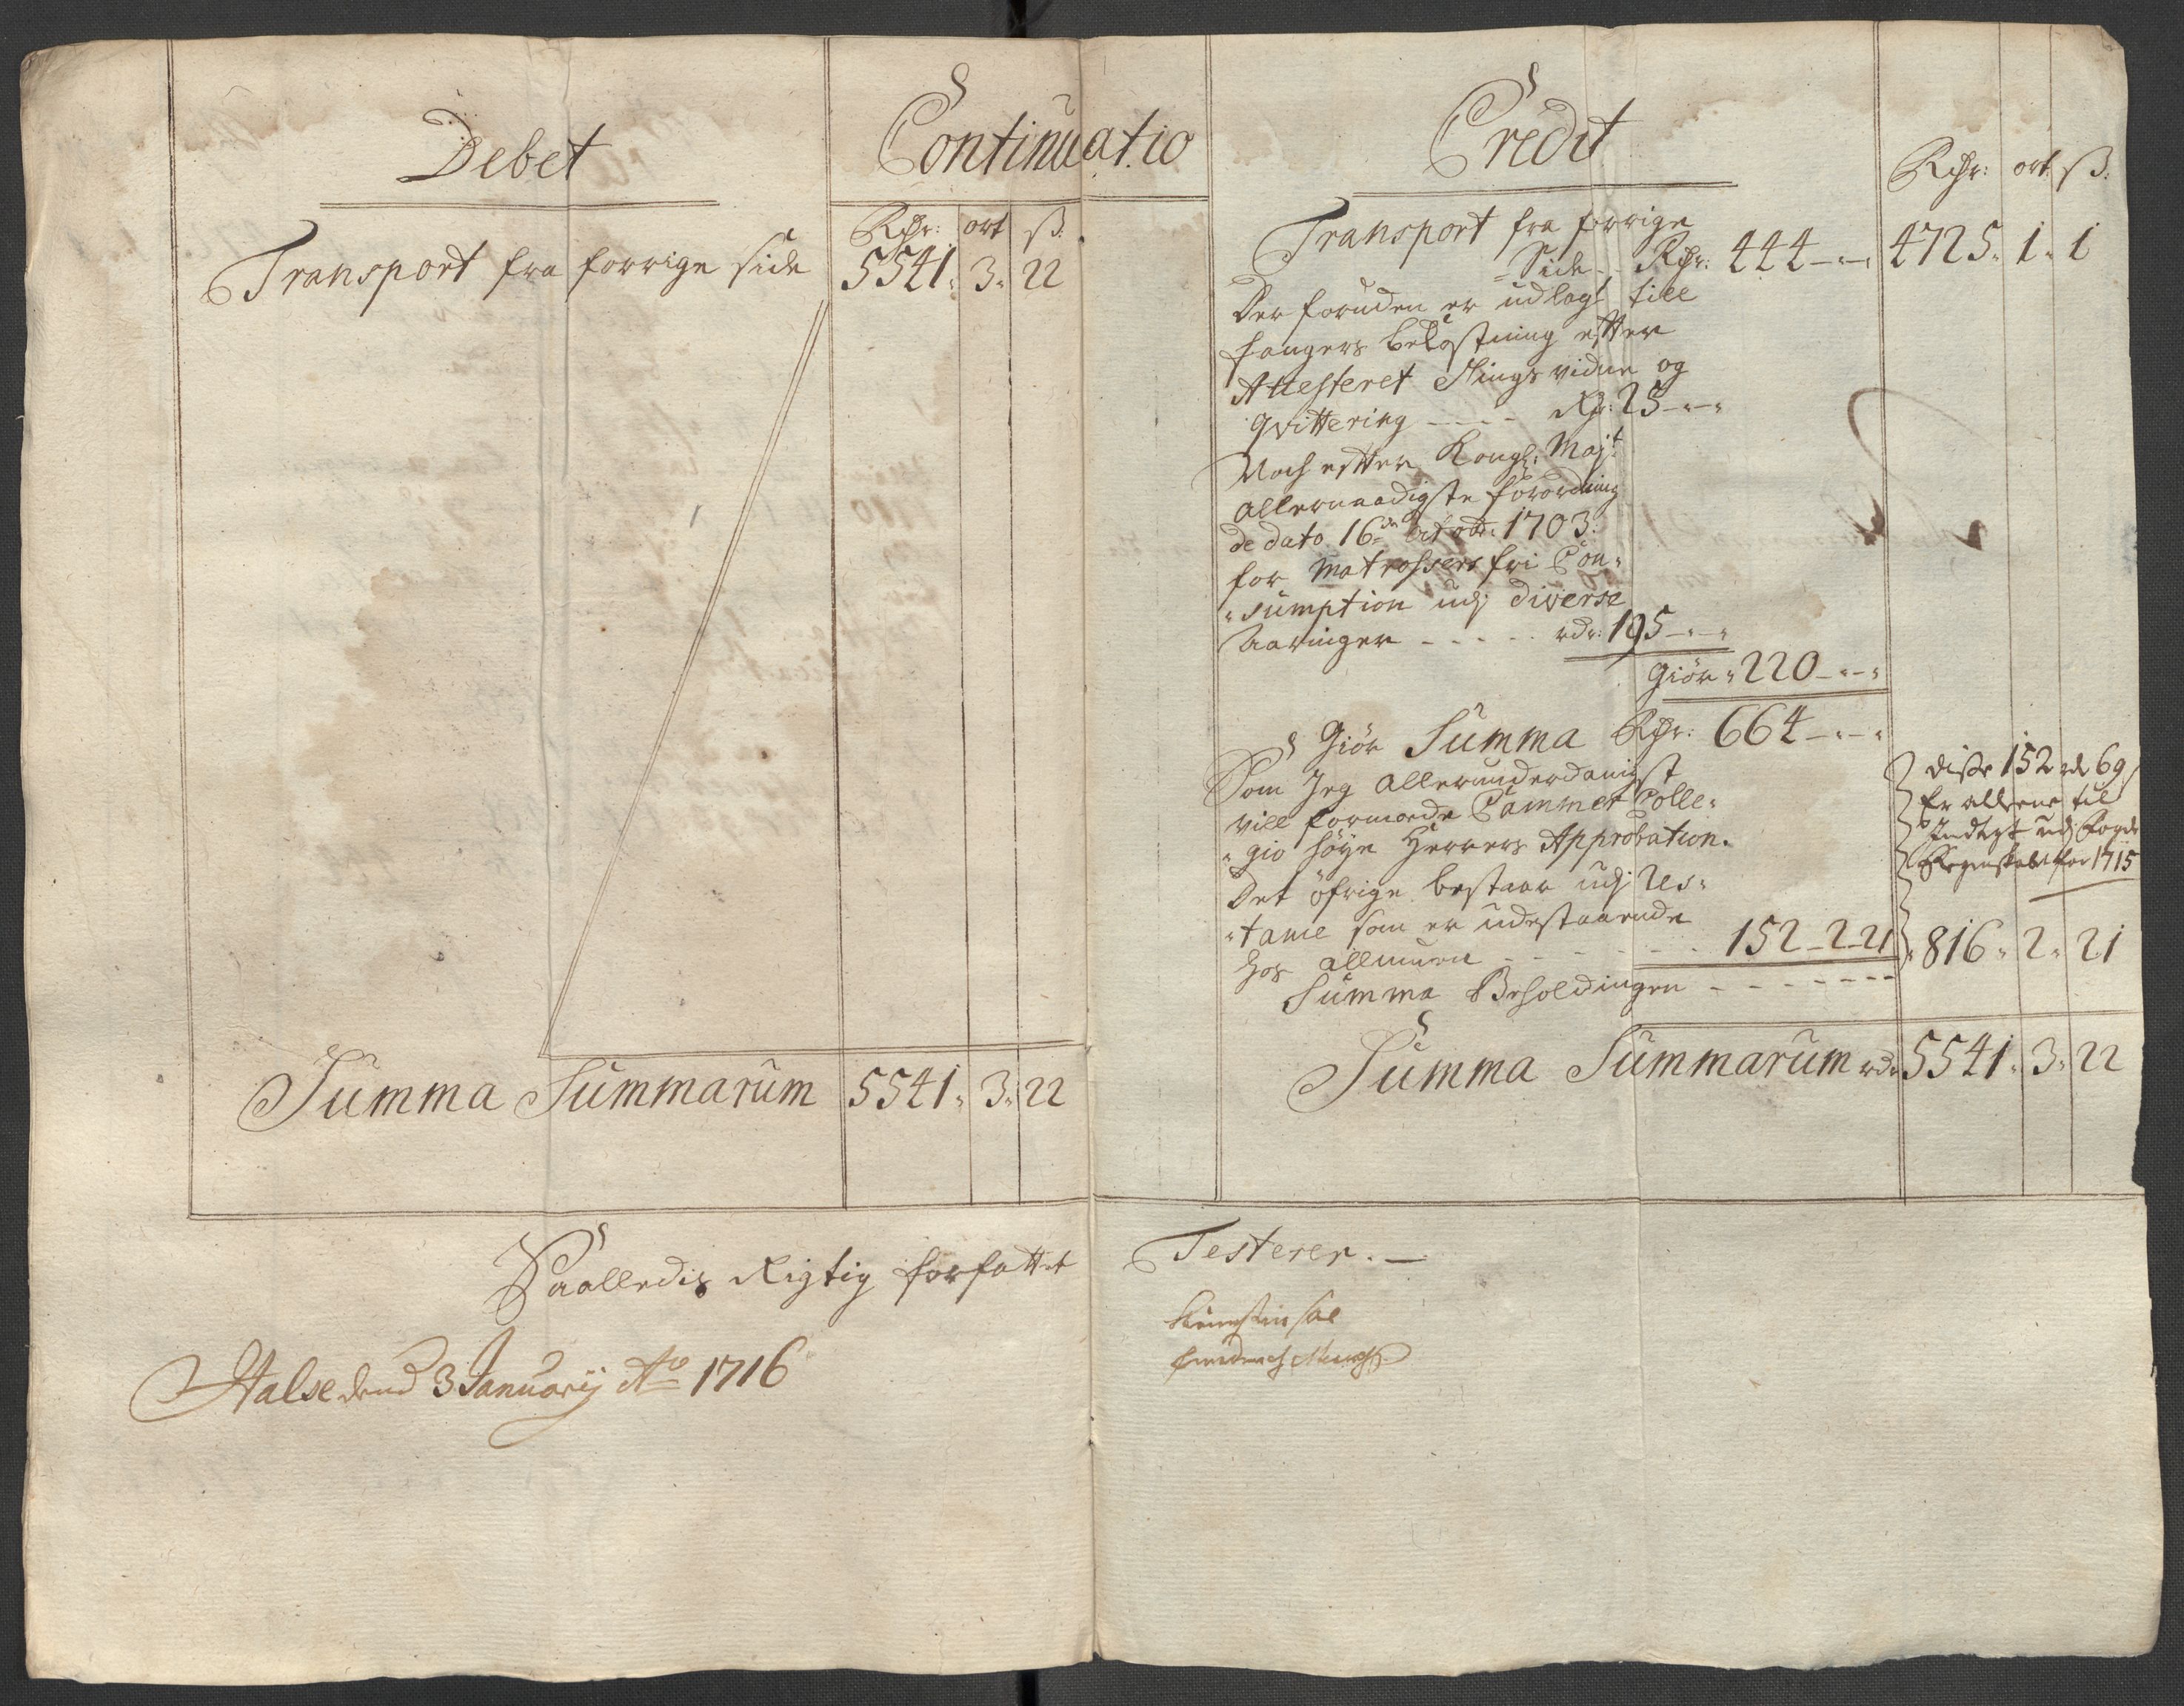 Debet
Continuatio
Rdr: ort ß.
Transport fra forrige side 5541. 3. 22
Summa Summarum 5541. 3. 22
Credit
Rdr: ort ß.
Transport fra forrige
Side Rdr: 444 - - 4725. 1. 1
Der foruden er udlagt till
fangers bekostning efter
Attesteret tings vidne og
Qvittering - - - - Rdr: 25 - - -
Noch efter Kongl: Mayt:
allernaadigste forordning
de dato 16de octobr: 1703.
for Matrossers fri Con-
sumption udj diverse
Aaringer - - - - - rdr: 195 - - -
Giör 220 - - -
Giör Summa Rdr: 664 - - -
Som Jeg allerunderdanigst
vill formode Cammer Colle-
gio høye Herrers Approbation.
Det öfrige bestaar udj Res-
tance som er udestaaende
hos allmuen - - - - - 152 - 2 - 21
Summa Beholdingen - - - - - - - 816. 2. 21
disse 152 rdr 69 ß
Er alleene til
Indtegt udj Fogde
Regenskabet for 1715
Summa Summarum rdr 5541. 3. 22
Saalledis Rigtig forfattet
Testerer. -
Halse dend 3 January Ao 1716